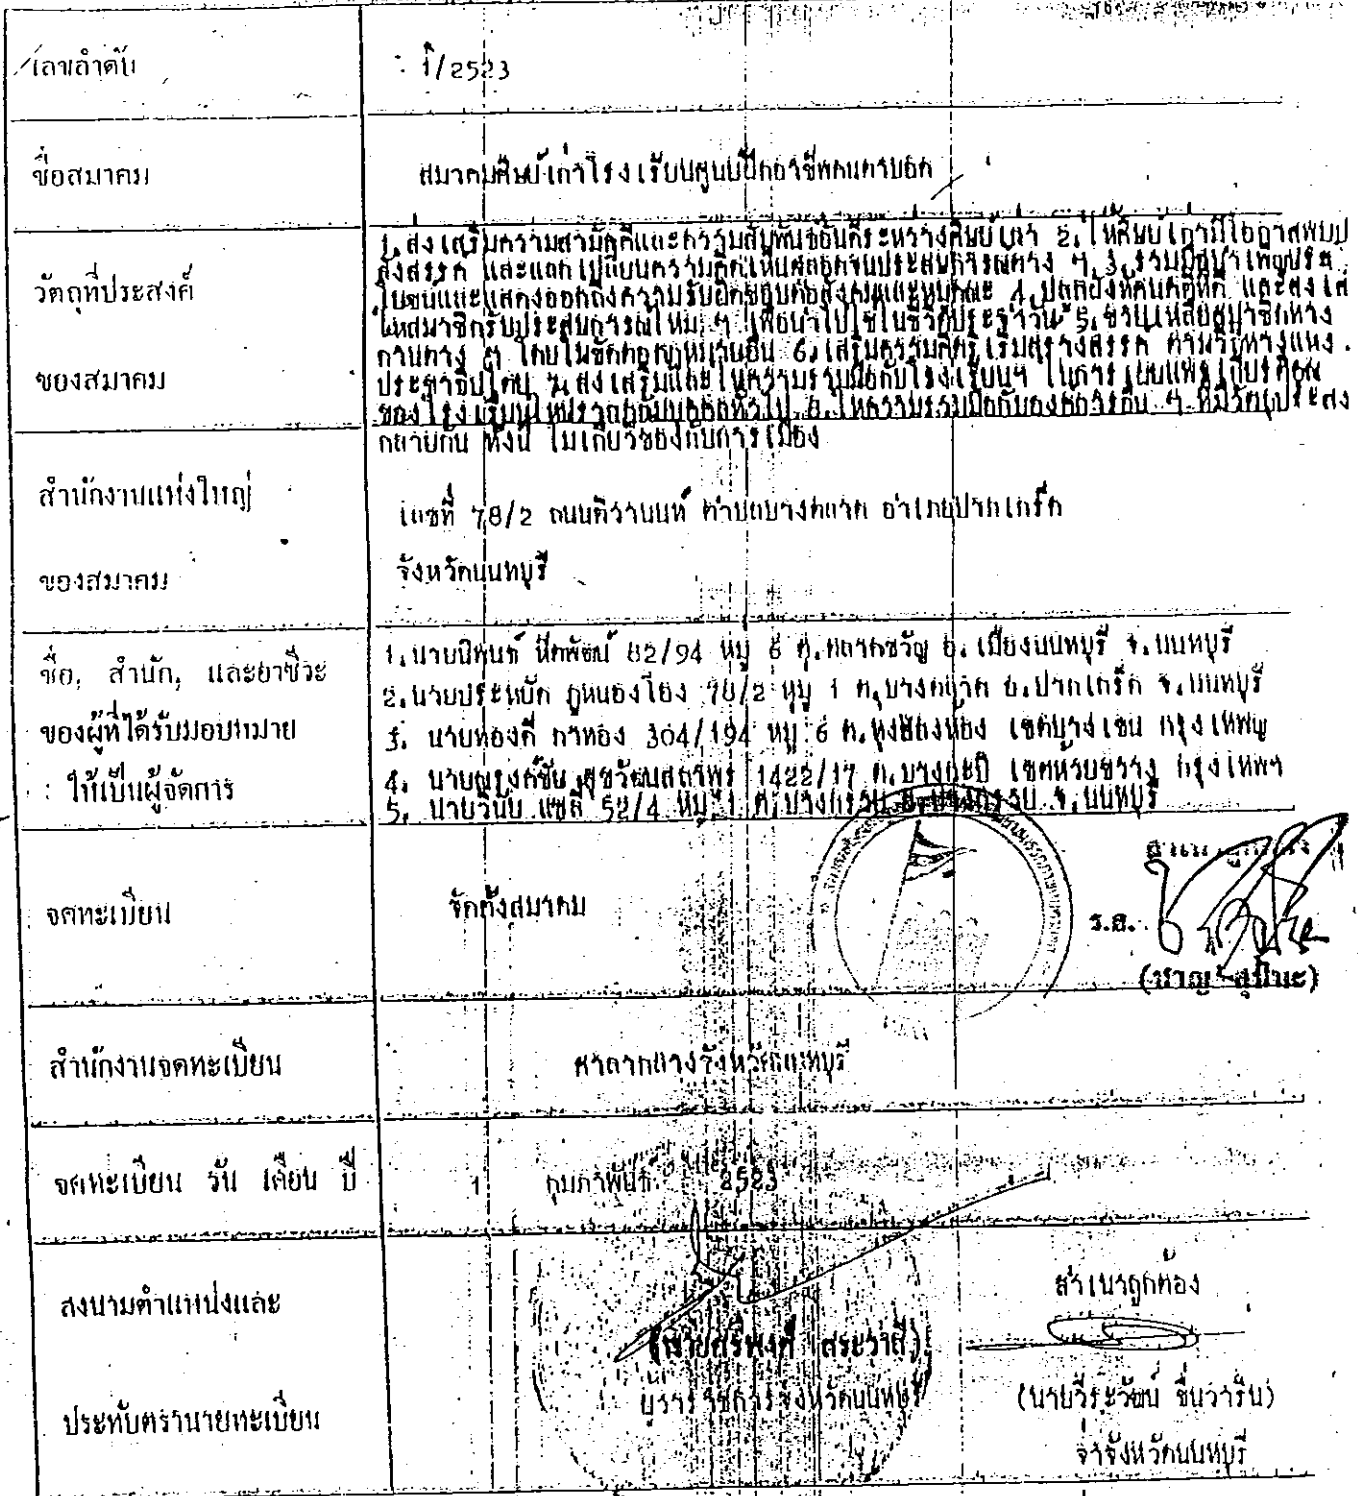 เลขลำดับ
1/2523
ชื่อสมาคม
สมาคมศิษย์เก่าโรงเรียนศูนย์ฝึกอาชีพคนตาบอด
วัตถุที่ประสงค์
ของสมาคม
1. ส่งเสริมความสามัคคีและความสัมพันธ์อันดีระหว่างศิษย์เก่า 2. ให้ศิษย์เก่ามีโอกาสพบปะ
สังสรรค์ และแลกเปลี่ยนความคิดเห็นตลอดจนประสบการณ์ต่าง ๆ 3. ร่วมมือบำเพ็ญประ
โยชน์และแสดงออกถึงความรับผิดชอบต่อสังคมและหมู่คณะ 4. ปลูกฝังทัศนคติที่ดี และส่งเส
ให้สมาชิกรับประสบการณ์ใหม่ ๆ เพื่อนำไปใช้ในชีวิตประจำวัน 5. ช่วยเหลือสมาชิกทาง
ด้านต่าง ๆ โดยไม่ขัดต่อกฎหมายอื่น 6. เสริมความคิดริเริ่มสร้างสรรค์ ตามวิถีทางแห่ง
ประชาธิปไตย 7. ส่งเสริมและให้ความร่วมมือกับโรงเรียนฯ ในการเผยแพร่เกียรติคุณ
ของโรงเรียนให้ปรากฏแก่บุคคลทั่วไป 8. ให้ความร่วมมือกับองค์การอื่น ๆ ที่มีวัตถุประสง
คล้ายกัน ทั้งนี้ ไม่เกี่ยวข้องกับการเมือง
สำนักงานแห่งใหญ่
ของสมาคม
เลขที่ 78/2 ถนนติวานนท์ ตำบลบางตลาด อำเภอปากเกร็ด
จังหวัดนนทบุรี
ชื่อ, สำนัก, และอาชีวะ
ของผู้ที่ได้รับมอบหมาย
: ให้เป็นผู้จัดการ
1. นายนิพนธ์ 82/94 หมู่ 6 ต.ตลาดขวัญ อ.เมืองนนทบุรี จ.นนทบุรี
2. นายประหยัด ภูหนองโอง 78/2 หมู่ 1 ต.บางตลาด อ.ปากเกร็ด จ.นนทบุรี
3. นายทองดี กาทอง 304/194 หมู่ 6 ต.ทุ่งสองห้อง เขตบางเขน กรุงเทพฯ
4. นายณรงค์ชัย 1422/17 ต.บางกะปิ เขตห้วยขวาง กรุงเทพฯ
5. นายวินัย แซ่ลี 52/4 หมู่ 1 ต.บางกรวย อ.บางกรวย จ.นนทบุรี
จดทะเบียน
จัดตั้งสมาคม
ร.ต.
สำนักงานจดทะเบียน
ศาลากลางจังหวัดนนทบุรี
จดทะเบียน วัน เดือน ปี
1 กุมภาพันธ์ 2523
ลงนามตำแหน่งและ
ประทับตรานายทะเบียน
(นายศรีพงศ์ สระวาสี)
ผู้ว่าราชการจังหวัดนนทบุรี
สำเนาถูกต้อง
(นายวีระวัฒน์ ชื่นวาริน)
จ่าจังหวัดนนทบุรี